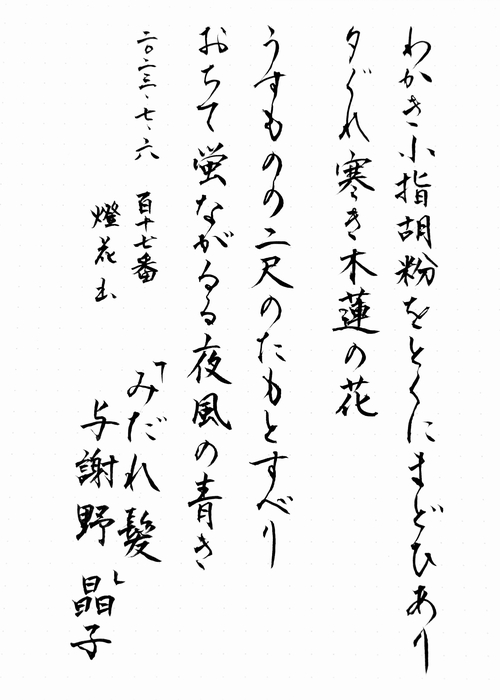 わかき小指胡粉をとくにまどひあり
夕ぐれ寒き木蓮の花
うすものの二尺のたもとすべり
おちて蛍ながるる夜風の青き
二〇二三、七、六
百十七番
燈花
「みだれ髪」
与謝野 晶子